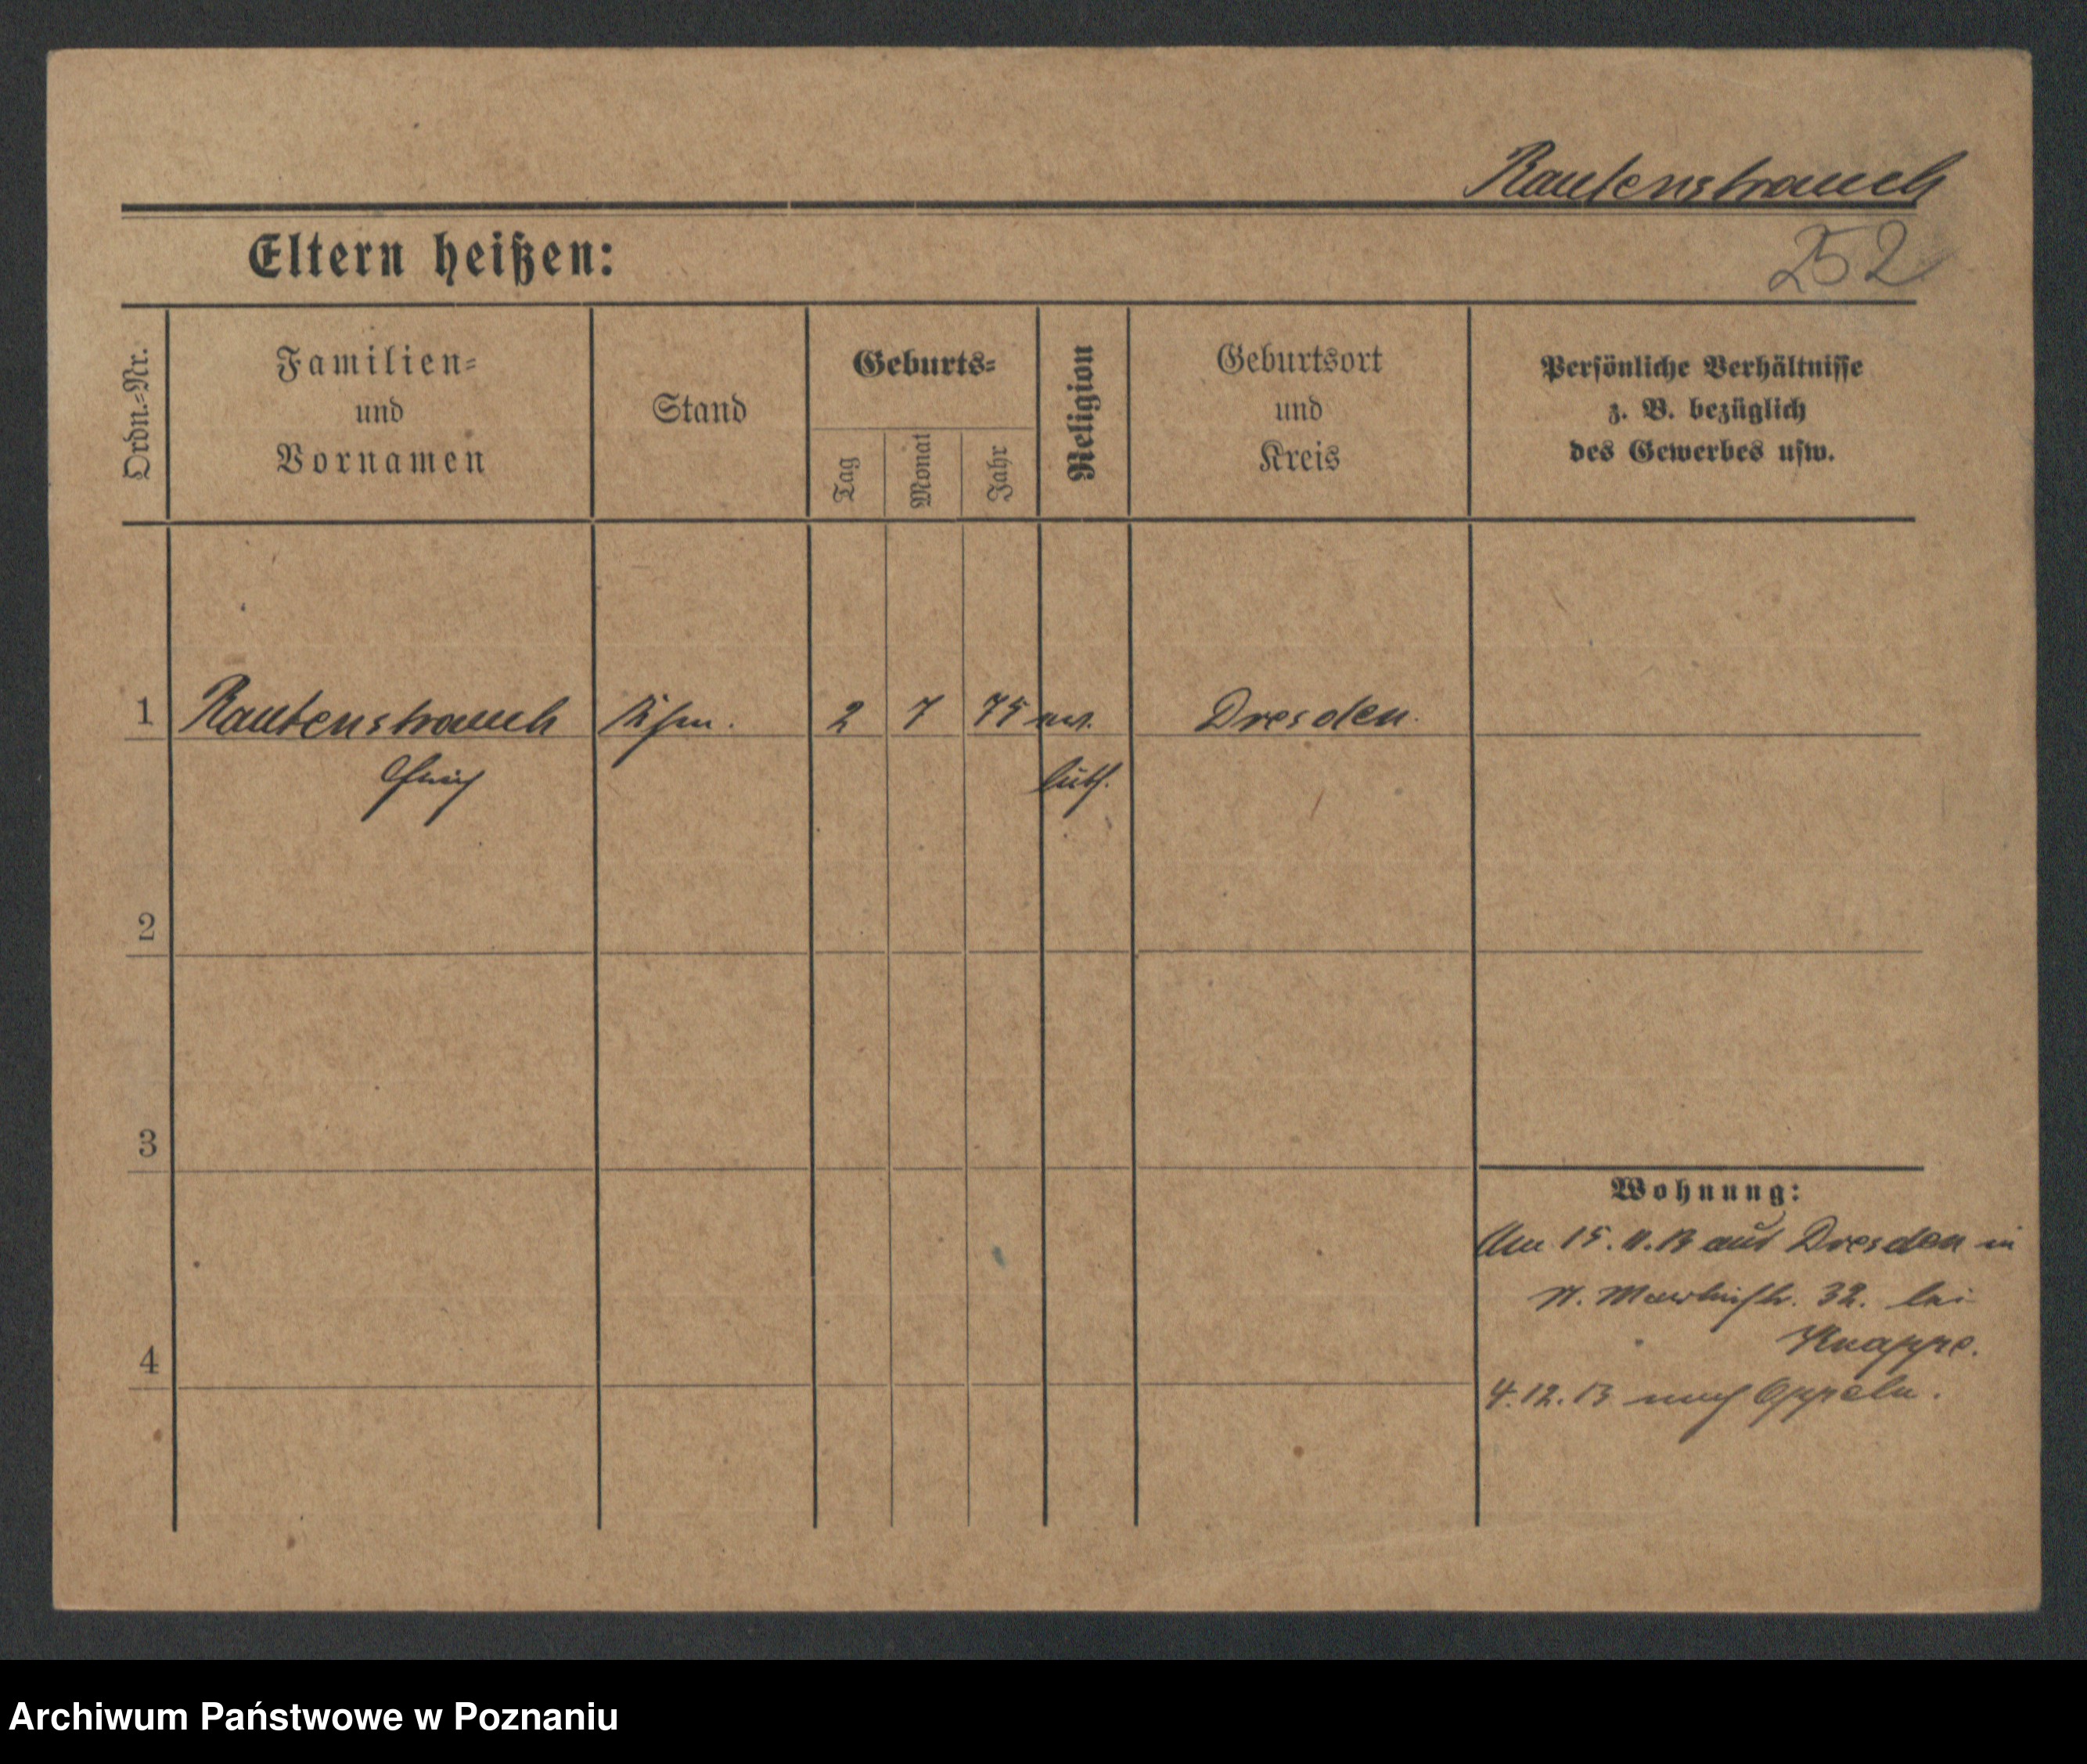 Rautenstrauch
252
Eltern heißen:
Ordn.-Nr.
Familien-
und
Vornamen
Stand
Geburts-
Tag
Monat
Jahr
Religion
Geburtsort
und
Kreis
Persönliche Verhältnisse
z. B. bezüglich
des Gewerbes usw.
1 Rautenstrauch 2 7 75 ev. Dresden.
luth.
2
3
4
Wohnung:
15. 11. 13 aus Dresden in
St. Martinstr. 32. bei
Knappe.
4. 12. 13 nach Oppeln.
Archiwum Państwowe w Poznaniu